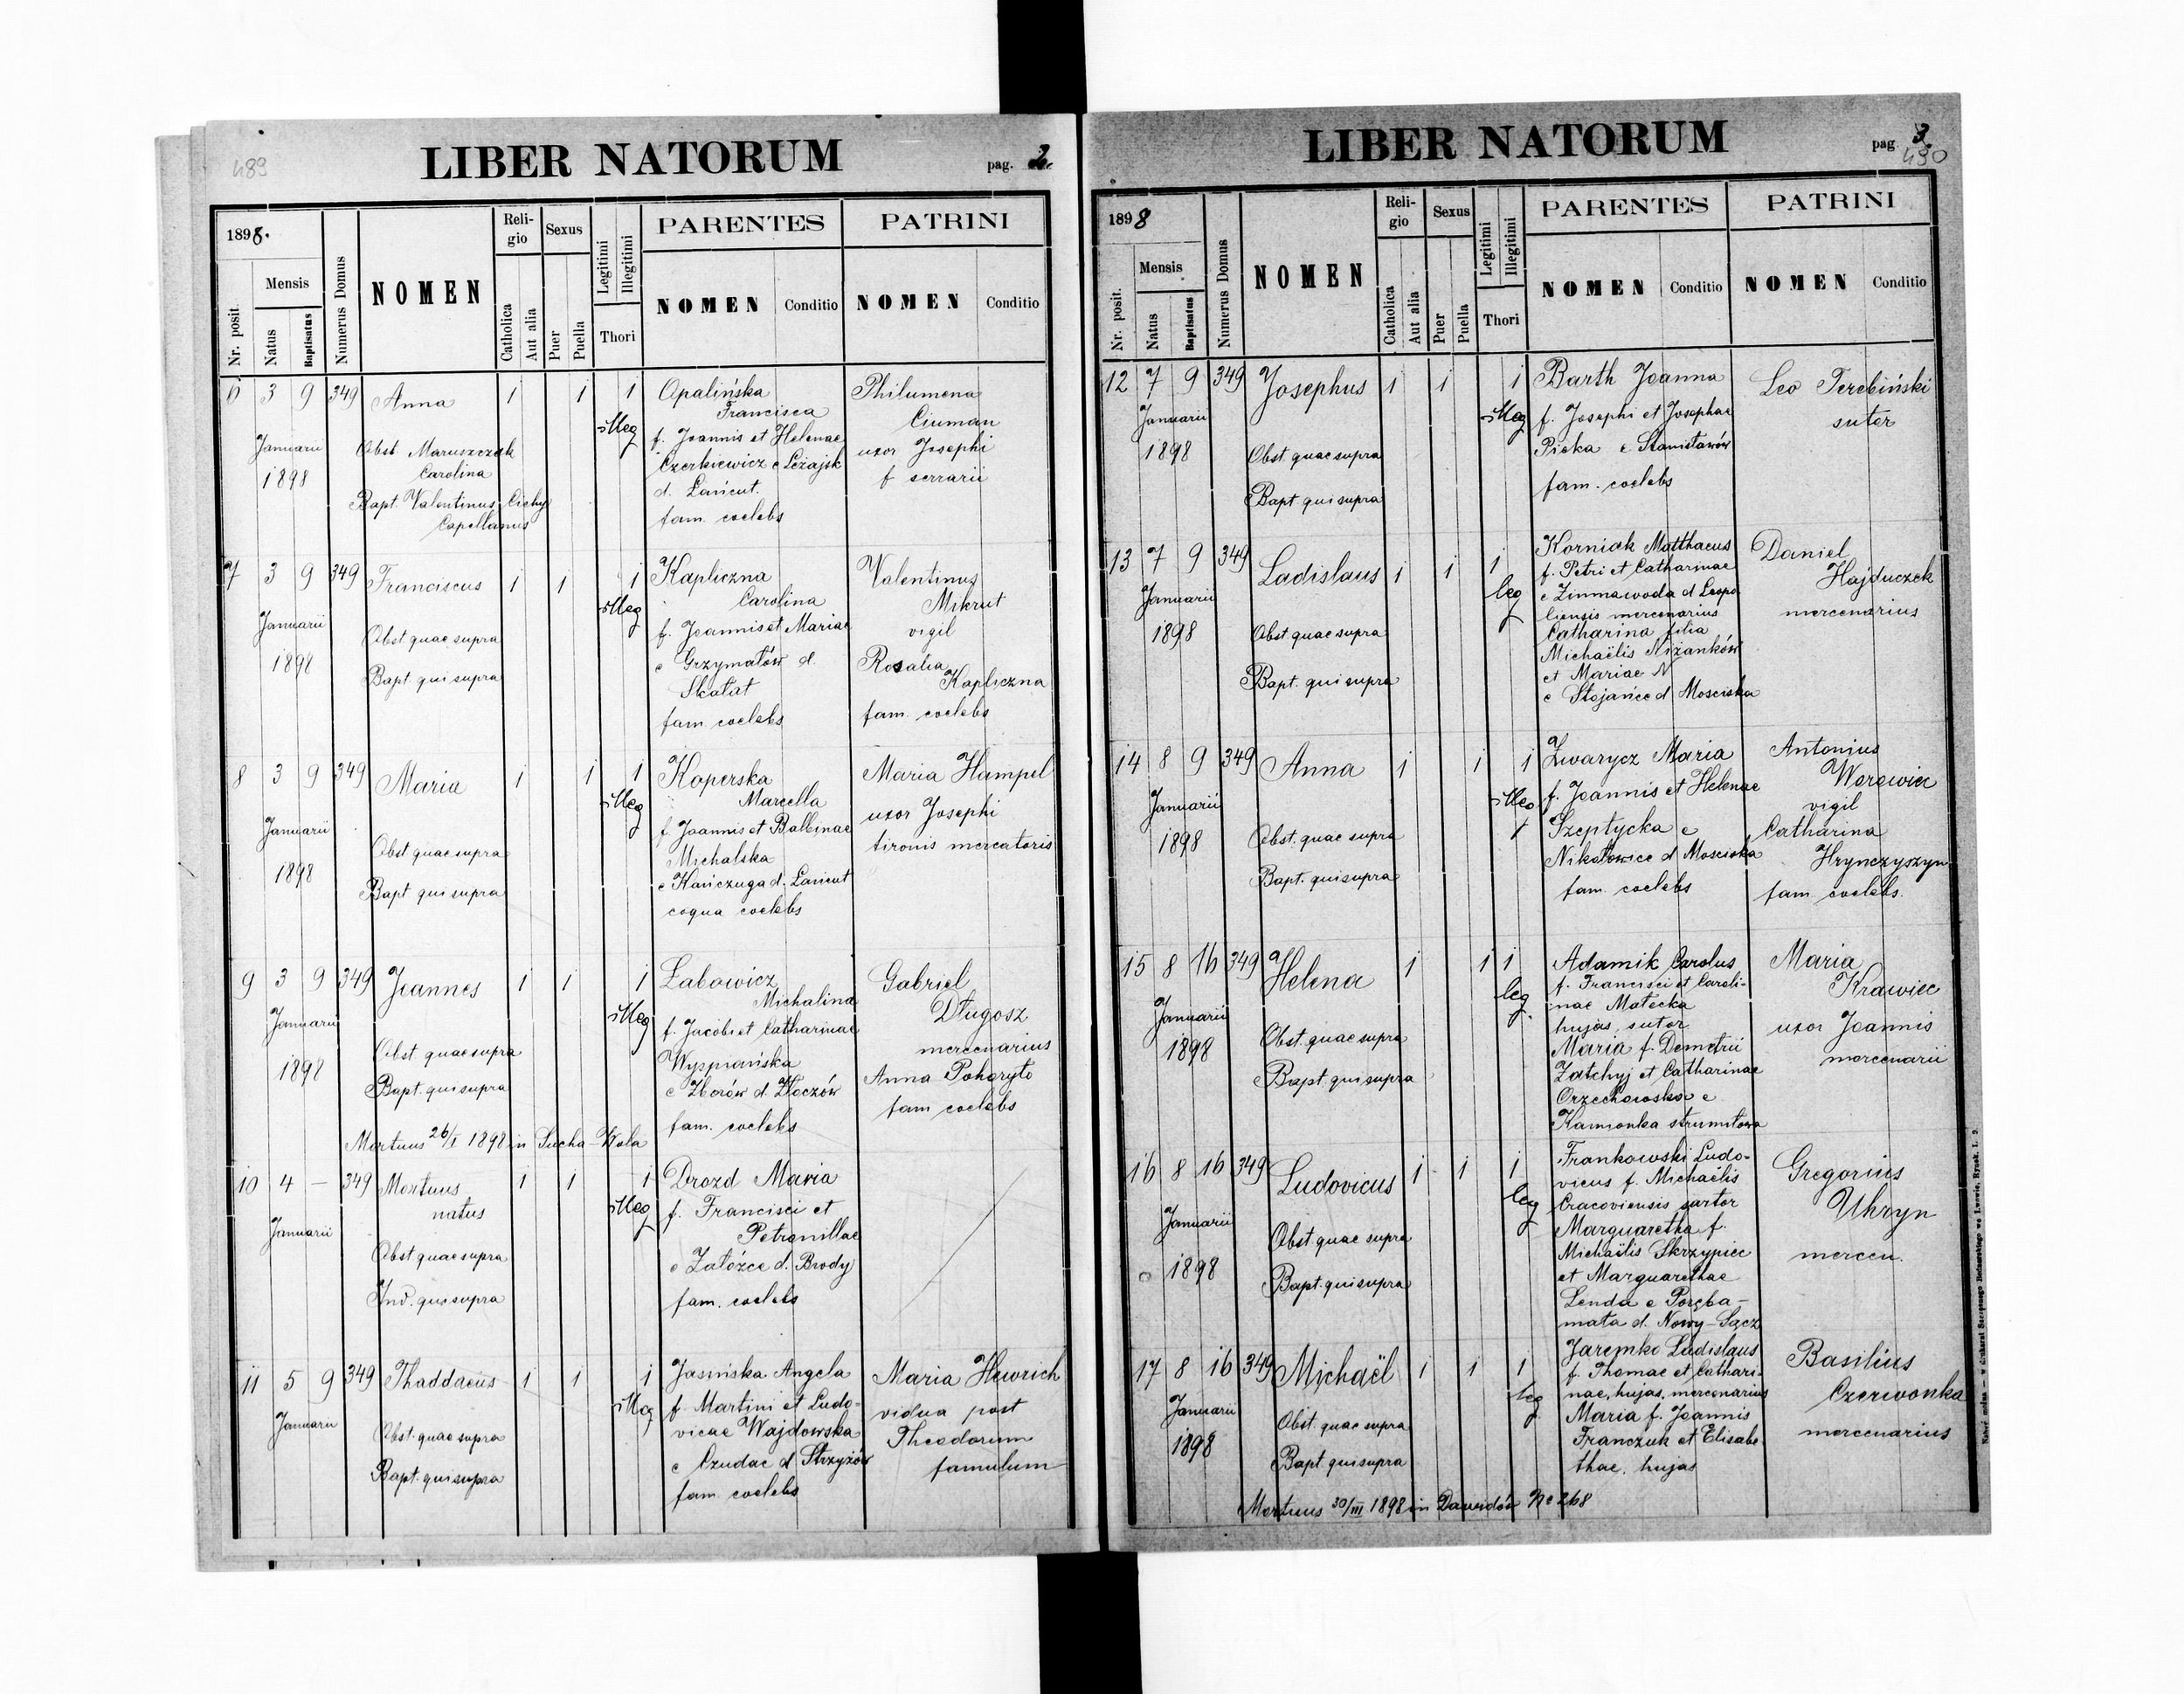 489
LIBER NATORUM
pag. 2.
1898.
Nr. posit.
Mensis
Natus
Baptisatus
Numerus Domus
NOMEN
Reli-
gio
Catholica
Aut alia
Sexus
Puer
Puella
Legitimi
Illegitimi
Thori
PARENTES
NOMEN
Conditio
PATRINI
NOMEN
Conditio
6 3 9 349 Anna 1 1 1
Januarii
1898
Obst Maruszczak
Carolina
Bapt. Valentinus Cichy
Capellanus
illeg
Opalińska
Francisca
f. Joannis et Helenae
Czerkiewicz e Leżajsk
d. Łańcut.
fam. coelebs
Philumena
Ciuman
uxor Josephi
f serrarii
7 3 9 349 Franciscus 1 1 1
Januarii
1898
Obst quae supra
Bapt qui supra
illeg
Kapliczna
Carolina
f. Joannis et Mariae
e Grzymałów d.
Skałat
fam. coelebs
Valentinus
Mikrut
vigil
Rosalia
Kapliczna
fam. coelebs
8 3 9 349 Maria 1 1 1
Januarii
1898
Obst quae supra
Bapt qui supra
illeg
Koperska
Marcella
f. Joannis et Balbinae
Michalska
e Kańczuga d. Łańcut
coqua coelebs
Maria Hampel
uxor Josephi
tironis mercatoris
9 3 9 349 Joannes 1 1 1
Januarii
1898
Obst quae supra
Bapt. qui supra
Mortuus 26/I 1898 in Sucha-Wola
illeg
Labowicz
Michalina
f. Jacobi et Catharinae
Wyspiańska
e Zborów d. Złoczów
fam. coelebs
Gabriel
Długosz
mercenarius
Anna Pohoryto
fam coelebs
10 4 — 349 Mortuus 1 1 1
natus
Januarii
Obst quae supra
Ind. qui supra
illeg
Drozd Maria
f. Francisci et
Petronillae
e Załózce d. Brody
fam. coelebs
11 5 9 349 Thaddaeus 1 1 1
Januarii
Obst. quae supra
Bapt. qui supra
illeg
Jasińska Angela
f. Martini et Ludo-
vicae Wajdowska
e Czudac d Strzyżów
fam coelebs
Maria
vidua post
Theodorum
famulum
LIBER NATORUM
pag 3.
490
1898
Nr. posit.
Mensis
Natus
Baptisatus
Numerus Domus
NOMEN
Reli-
gio
Catholica
Aut alia
Sexus
Puer
Puella
Legitimi
Illegitimi
Thori
PARENTES
NOMEN
Conditio
PATRINI
NOMEN
Conditio
12 7 9 349 Josephus 1 1 1
Januarii
1898
Obst quae supra
Bapt qui supra
illeg
Barth Joanna
f. Josephi et Josephae
Picka e Stanisławów
fam. coelebs
Leo Terebiński
sutor
13 7 9 349 Ladislaus 1 1 1
Januarii
1898
Obst quae supra
Bapt. qui supra
leg
Korniak Matthaeus
f. Petri et Catharinae
e Zimnawoda d Leopo
liensis mercenarius
Catharina filia
Michaëlis Niżanków
et Mariae N
e Stojańce d Mosciska
Daniel
Hajduczek
mercenarius
14 8 9 349 Anna 1 1 1
Januarii
1898
Obst. quae supra
Bapt. qui supra
illeg
Zwarycz Maria
f. Joannis et Helenae
Szeptycka e
Nikłowice d Mosciska
fam. coelebs
Antonius
Worowiec
vigil
Catharina
Hrynczyszyn
fam. coelebs.
15 8 16 349 Helena 1 1 1
Januarii
1898
Obst. quae supra
Bapt. qui supra
leg.
Adamik Carolus
f. Francisci et Caroli-
nae Małecka
hujas, sutor
Maria f. Demetrii
Zatchyj et Catharinae
Orzechowska e
Kamionka strumiłowa
Maria
Krawiec
uxor Joannis
mercenarii
16 8 16 349 Ludovicus 1 1 1
Januarii
1898
Obst. quae supra
Bapt. qui supra
leg
Frankowski Ludo-
vicus f. Michaëlis
Cracoviensis sartor
Marguaretha f.
Michaëlis Skrzypiec
et Marguarethae
Lenda e Poręba-
mała d. Nowy-Sącz
Gregorius
Uhryn
mercen.
17 8 16 349 Michaël 1 1 1
Januarii
1898
Obst. quae supra
Bapt qui supra
leg
Jaremko Ladislaus
f. Thomae et Cathari-
nae, hujas, mercenarius
Maria f. Joannis
Franczuk et Elisabe
thae, hujas
Basilius
Czerwonka
mercenarius
Mortuus 30/III 1898 in Dawidów No 268